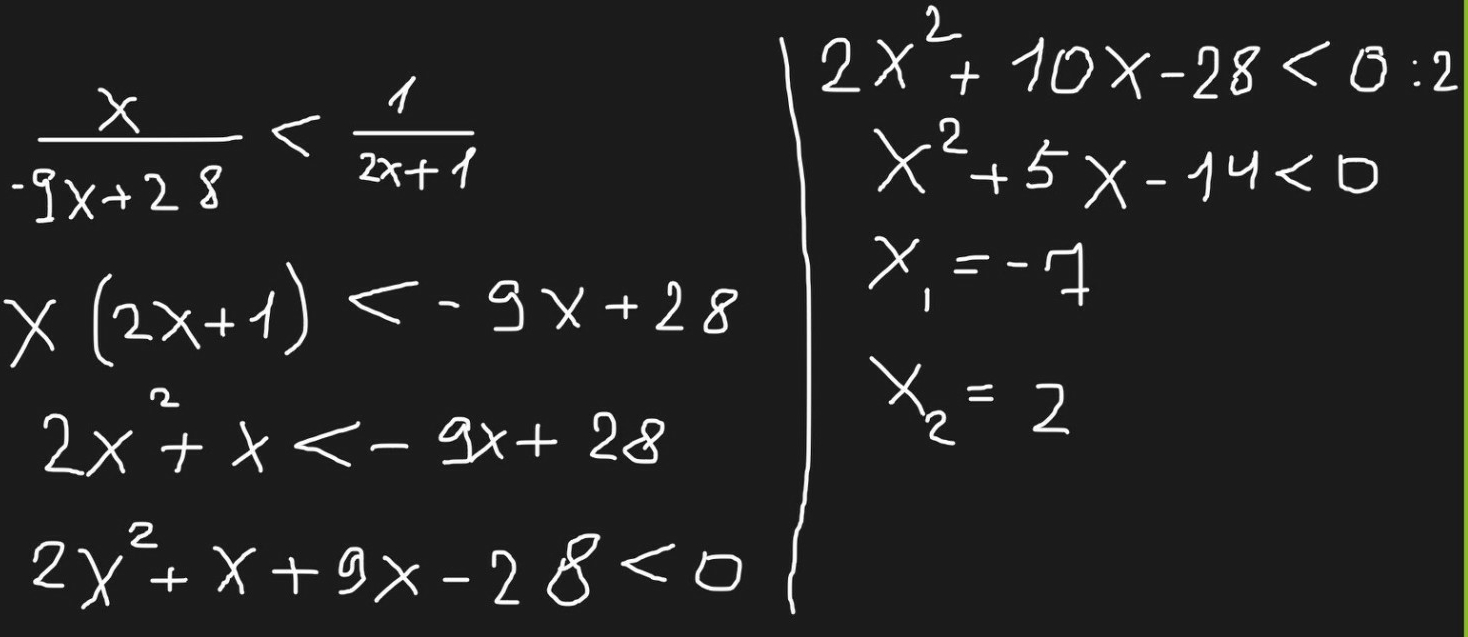 x/(-9x+28) < 1/(2x+1)
x(2x+1) < -9x+28
2x²+x < -9x+28
2x²+x+9x-28 < 0
2x²+10x-28 < 0 :2
x²+5x-14 < 0
x₁ = -7
x₂ = 2